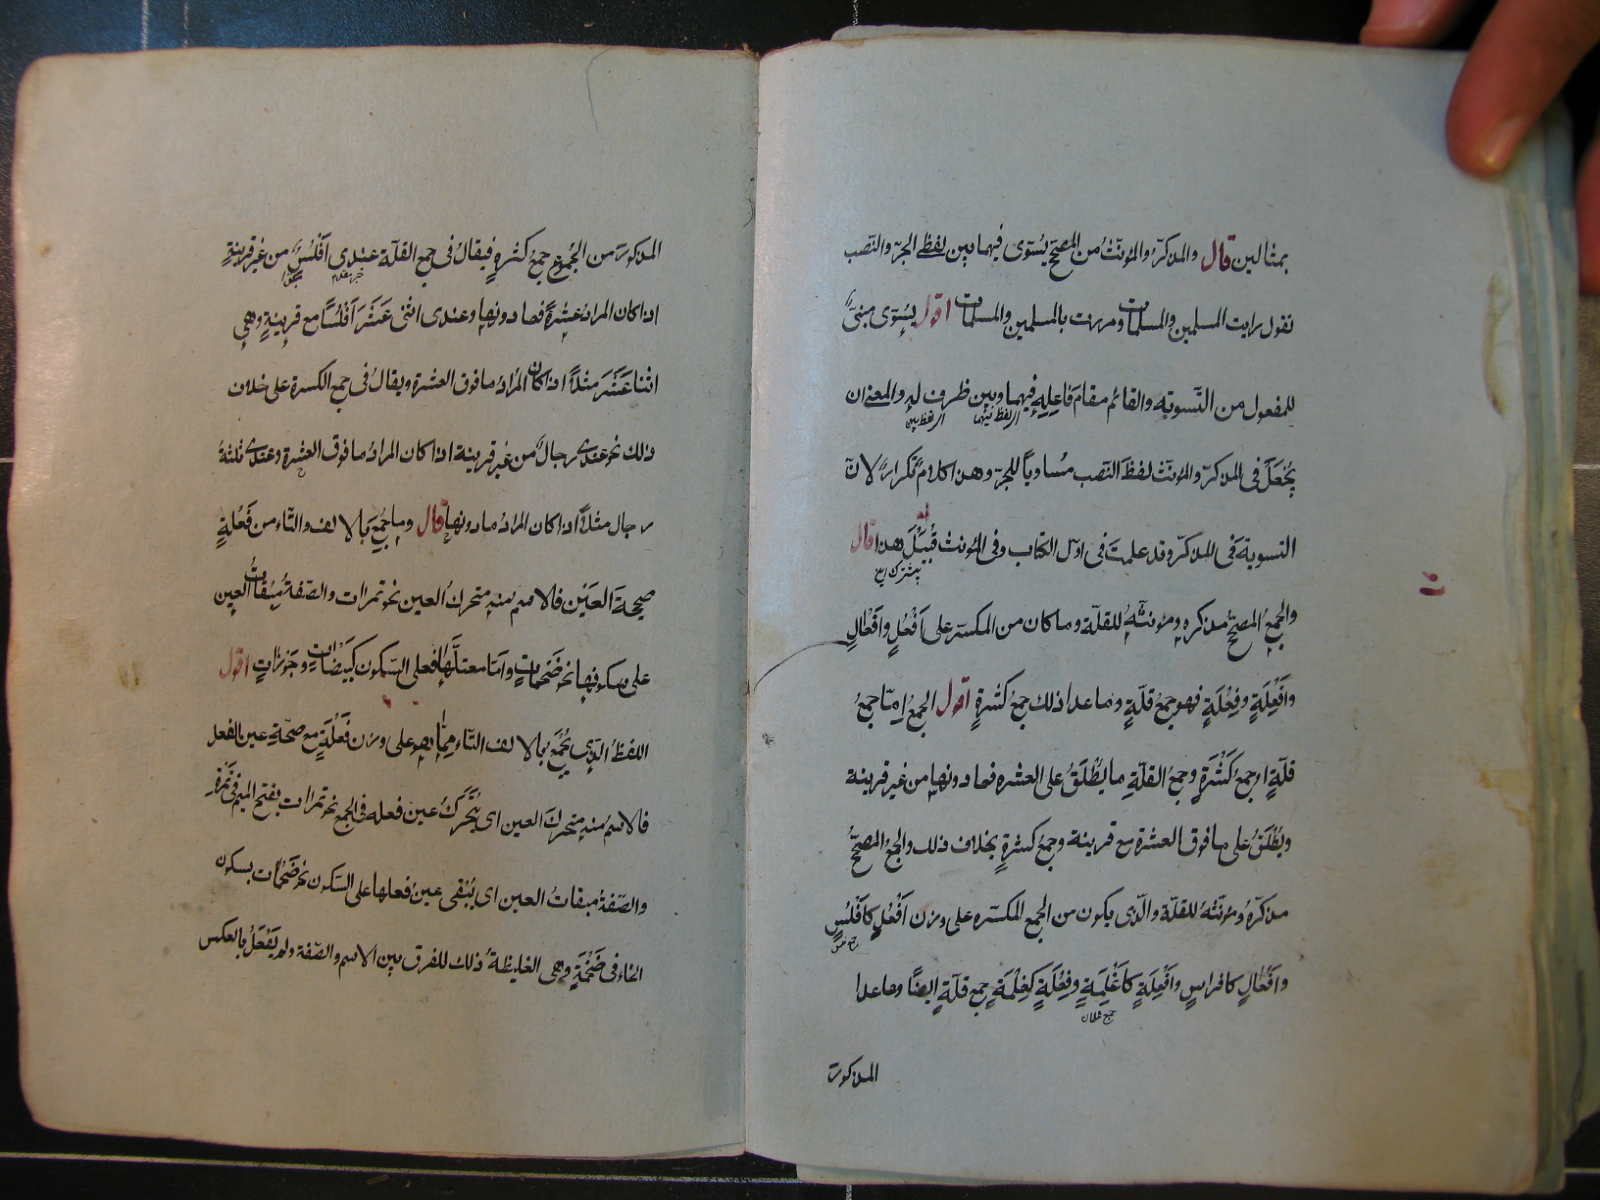 بمثالين قال والمذكّر والمؤنّث من المصحّح يُسَوّى فيهما بين لفظي الجرّ والنّصب
تقول رايت المسلمين والمسلمات ومررت بالمسلمين والمسلمات اقول يُسَوّى مبنيٌّ
للمفعول من التّسوية والقائم مقام فَاعِلِهِ فيهما وبين ظرف له والمعنى ان
يُجْعَلَ في المذكّر والمؤنّث لفظَ النّصب مُساوياً للجرّ وهذا كلامٌ تكرارٌ لانّ
التسوية في المذكّر وقد علمتَ في اوّل الكتاب وفى المؤنّث قُبَيْلَ هذا قال
والجمعُ المصحّحُ مذكّره ومؤنثُهُ للقلّة وما كان من المكسّر على اَفْعُلٍ واَفْعَالٍ
واَفْعِلَةٍ وفِعْلَةٍ فهو جمعُ قلّةٍ وما عدا ذلك جمعُ كثرةٍ اقول الجمعُ اِمّا جمعُ
قلّةٍ او جمع كَثْرَةٍ وجمعُ القلّةِ ما يُطْلَقُ على العشره فما دونها من غير قرينة
ويُطْلَقُ على ما فوق العشرة مع قرينة وجمعُ كثرةٍ بخلاف ذلك والجمعُ المصحّحُ
مذكّرهُ ومؤنّثهُ للقلّة والّذى يكون من الجمع المكسّره على وزن اَفْعُلٍ كاَفْلُسٍ
واَفْعَالٍ كافراسٍ واَفْعِلَةٍ كاَغْلِمَةٍ وفِعْلَةٍ كغِلْمَةٍ جمع قلّةٍ ايضًا وما عدا
جمع غلمان
المذكورة
المذكورة من الجُموع جمعُ كثرةٍ فيقالُ فى جمع القلّة عندى اَفْلُسٌ من غير قرينةٍ
اذا كان المرادُ عشرةً فما دونها وعندى اثنى عَشَرَ اَفْلُسًا مع قرينةٍ وهى
اثنا عَشَرَ مثلاً اذا كان المُرادُ ما فوق العشرة ويقالُ فى جمع الكسرة على خلاف
ذلك نحو عندى رجالٌ من غير قرينة اذا كان المرادُ ما فوق العشرة وعندى ثلثةُ
رجال مثلاً اذا كان المرادُ ما دونها قال وما جُمِعَ بالالف والتّاء من فَعْلةٍ
صحيحة العَيْن فالاسم منه متحرك العين نحو تمرات والصّفةُ مُبقاتُ العين
على سكونها نحو ضَخْمات وامّا معتلّها فعلى السّكون كبَيْضات وجَوْزاتٍ اقول
اللفظُ الذى يُجْمَعُ بالالف التّاء ممّا هو على وزن فَعْلَةٍ مع صحّة عين الفعل
فالاسمُ منه متحركُ العين اى يُتَحَرَّكُ عين فعله فى الجمع نحو تمرات بفتح الميم فى تمرة
والصّفةُ مبقاتُ العين اى يُبْقى عينُ فعلها على السّكون نحو ضَخْمات بسكون
الخاء فى ضَخْمَةٍ وهى الغليظةُ ذلك للفرق بين الاسم والصّفة ولم يُفْعَلْ بالعكس